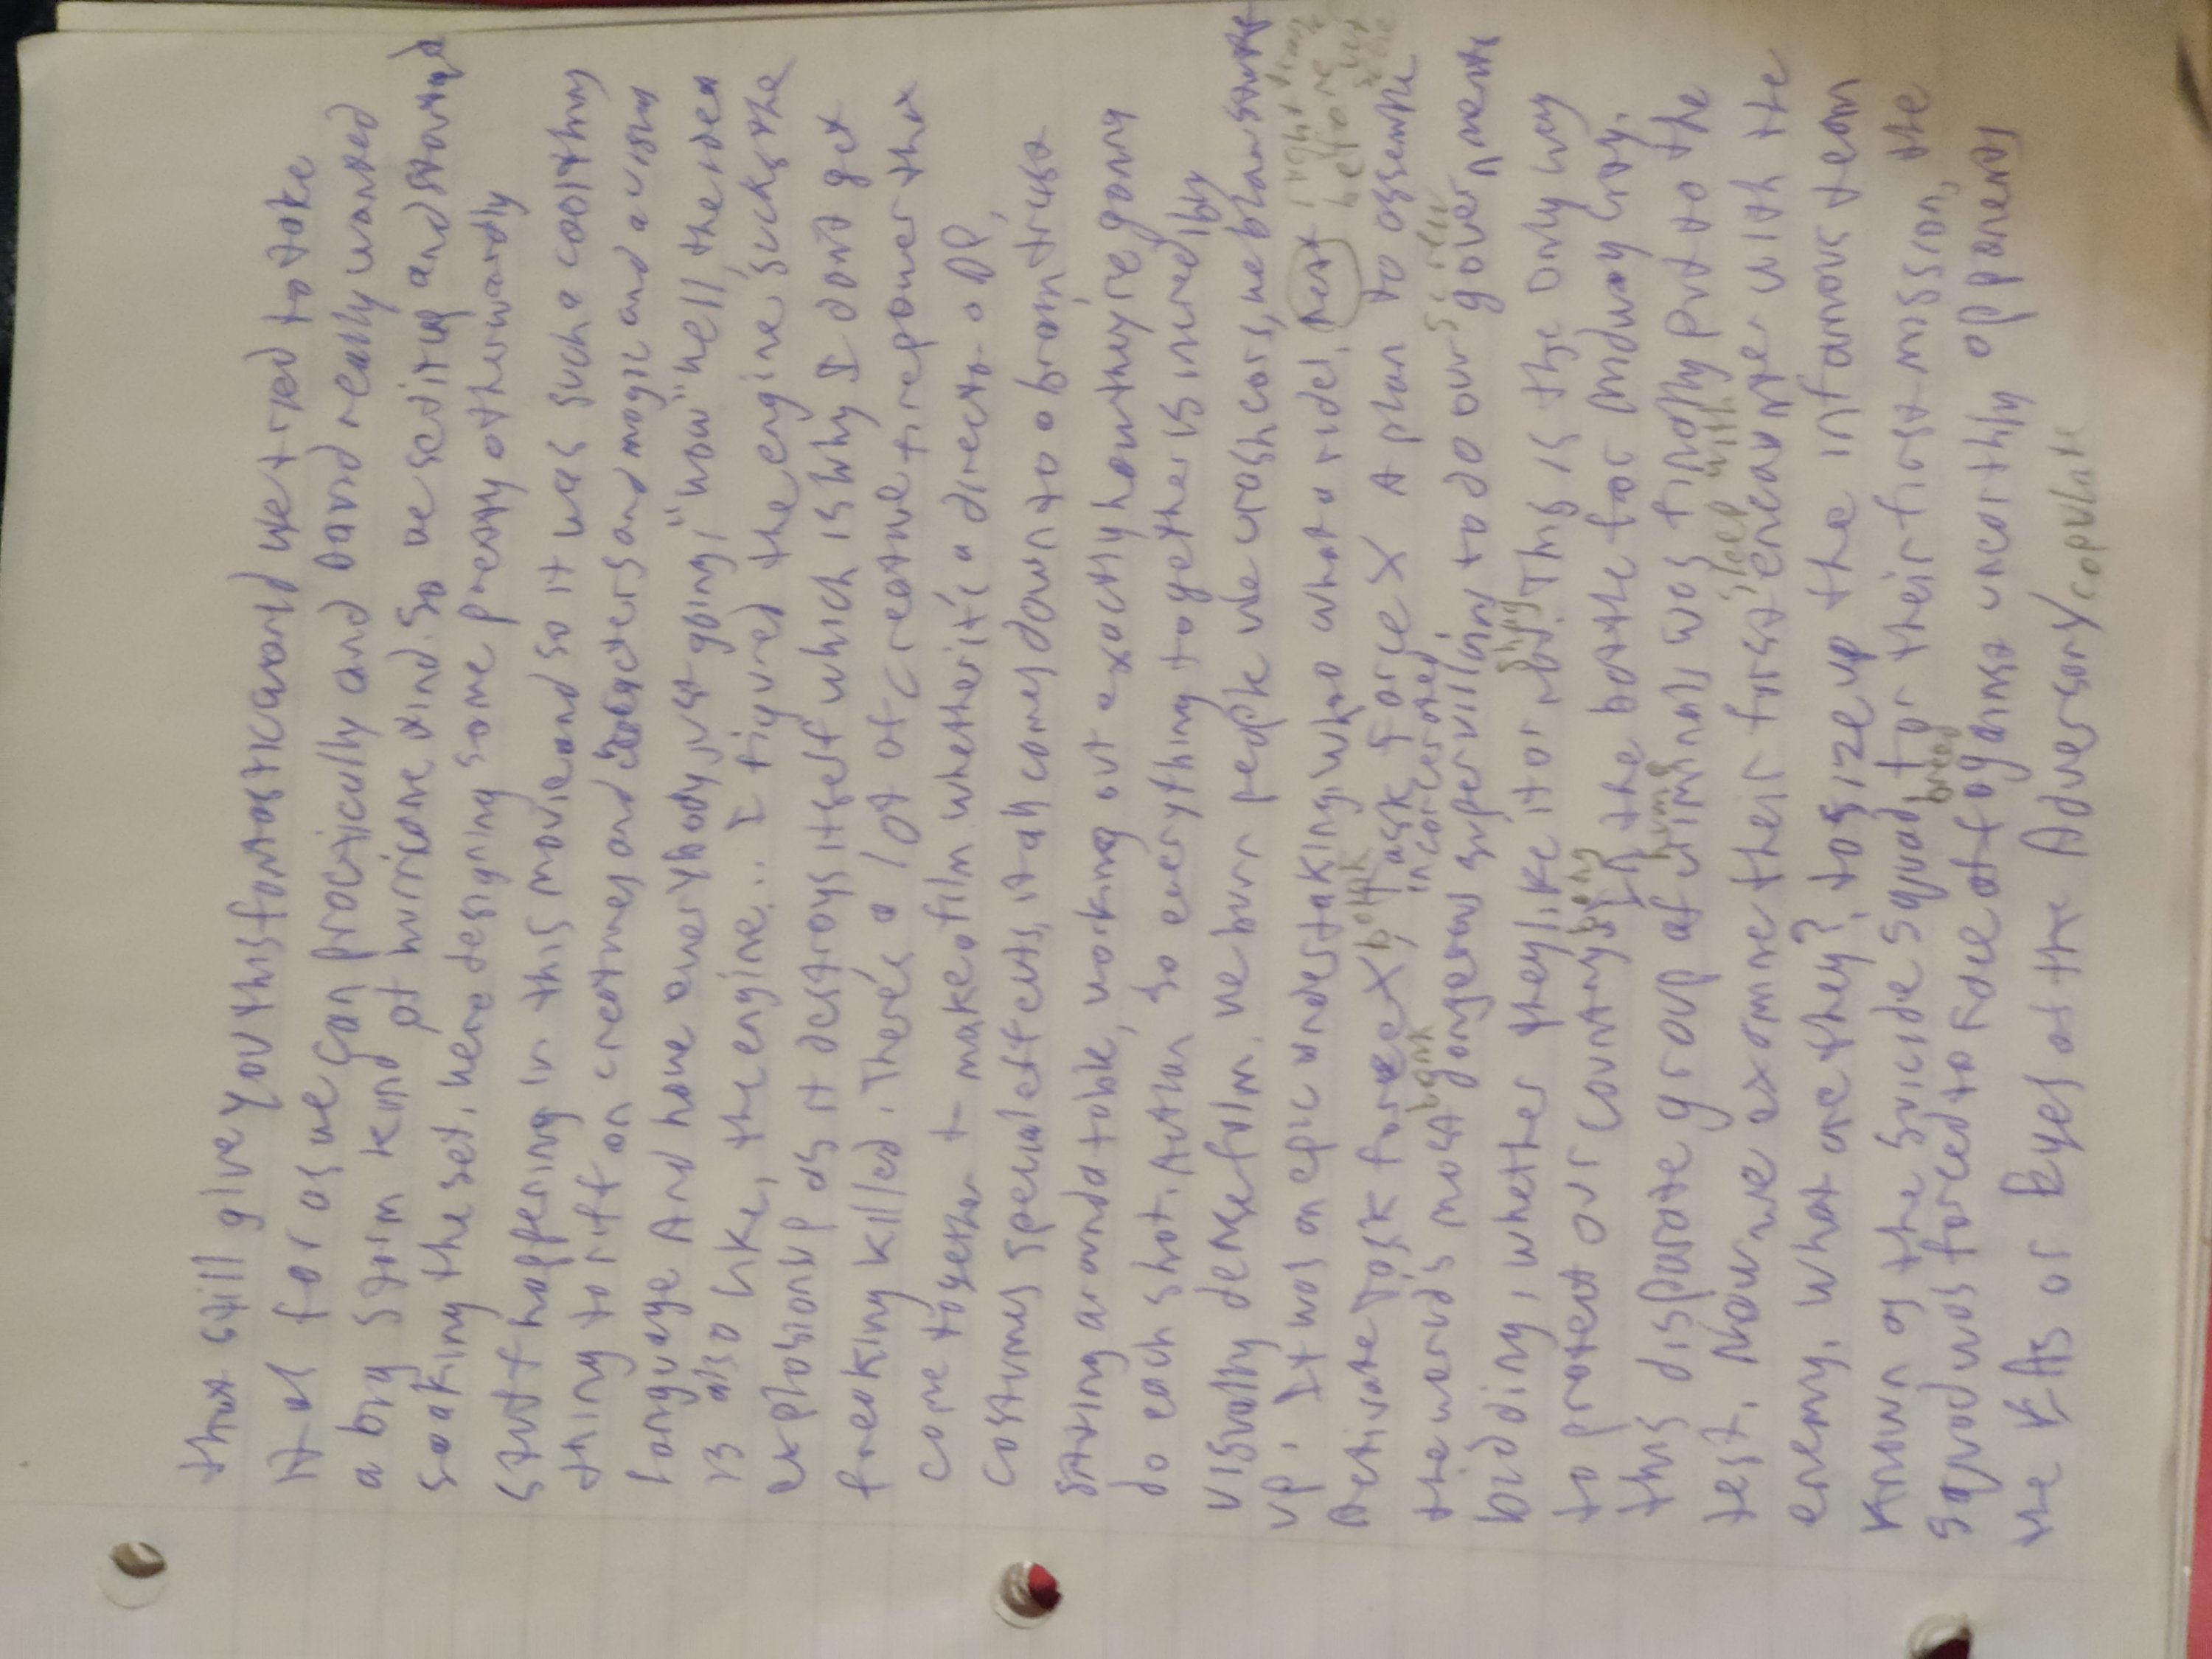 that still give you this fantastic world we tried to take
it as far as we can practically and David really wanted
a big storm kind of hurricane wind. so we setting and started
soaking the set, were designing some pretty otherwardly
stuff happening in this movie and so it was such a cool thing
thing to riff on creatures and characters and magic and a visual
language And have everybody just going, "wow" well the idea
is also like, the engine... I figured the engine sucks the
explosion up as it destroys itself which is why I dont get
freaking killed. There's a lot of creative firepower that
come together to make a film whether it's a director a DP,
costumes special effects, it all comes down to a brain trust
sitting around a table, working out exactly how they're going
do each shot. Action so everything together is incredibly
visually dense film. we burn people we crash cars, we blow stuff
up. It was an epic undertaking, who what a ride. Next right time before
Activate Task force X, bork Task Force X A plan to assemble
the world's most dangerous supervillains to do our government
incarcerated
bidding, whether they like it or not. This is the only way
to protect our country in the battle for midway city.
this disparate group of criminals was finally put to the
test. Now we examine their first encounter with the
sleep with
enemy. what are they? to size up the infamous team
known as the suicide squad, for their first mission, the
squad was forced to face off against unearthly opponents
breed
the EAs or Eyes of the Adversary copulate